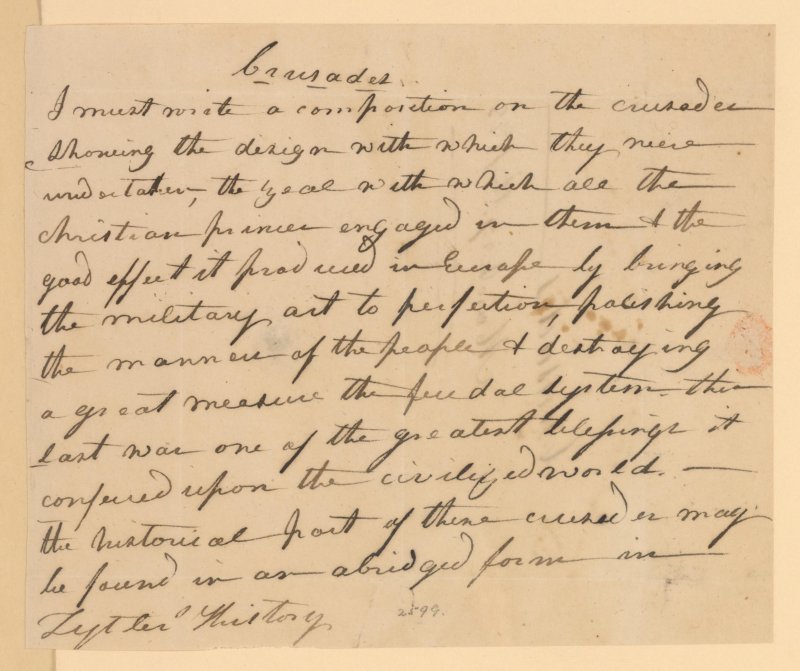 Crusades.
I must write a composition on the crusades
showing the design with which they were
undertaken, the zeal with which all the
christian princes engaged in them & the
good effect it produced in Europe by bringing
the military art to perfection, polishing
the manners of the people & destroying
a great measure the feudal system. this
last was one of the greatest blessings it
confered upon the civilized world. —
the historical part of these crusades may
be found in an abridged form in
Tytlers History
2599.